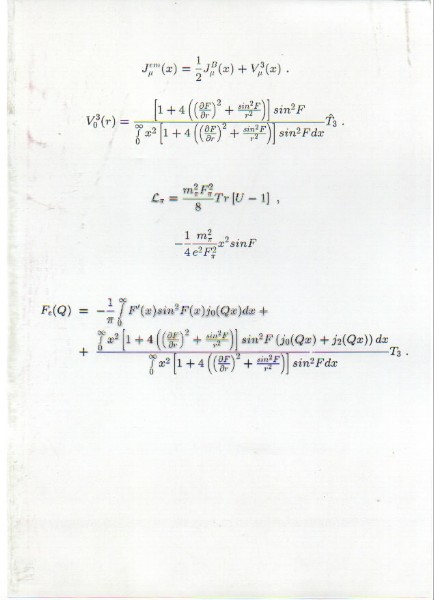 J_μ^{em}(x) = \frac{1}{2} J_μ^B(x) + V_μ^3(x) .
V_0^3(r) = \frac{[1 + 4 ((\frac{∂F}{∂r})^2 + \frac{sin^2F}{r^2})] sin^2F}{∫_0^∞ x^2 [1 + 4 ((\frac{∂F}{∂r})^2 + \frac{sin^2F}{r^2})] sin^2F dx} \hat{T}_3 .
\mathcal{L}_π = \frac{m_π^2 F_π^2}{8} Tr [U − 1] ,
−\frac{1}{4} \frac{m_π^2}{e^2 F_π^2} x^2 sinF
F_c(Q) = −\frac{1}{π} ∫_0^∞ F'(x) sin^2F(x) j_0(Qx) dx +
+ \frac{∫_0^∞ x^2 [1 + 4 ((\frac{∂F}{∂r})^2 + \frac{sin^2F}{r^2})] sin^2F (j_0(Qx) + j_2(Qx)) dx}{∫_0^∞ x^2 [1 + 4 ((\frac{∂F}{∂r})^2 + \frac{sin^2F}{r^2})] sin^2F dx} T_3 .